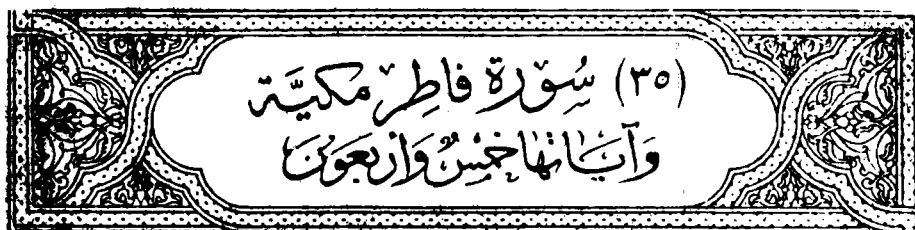 (٣٥) سُورَة فَاطِر مَكيَّة
وَآيَاتُهَا خَمْسٌ وَأَرْبَعُونَ